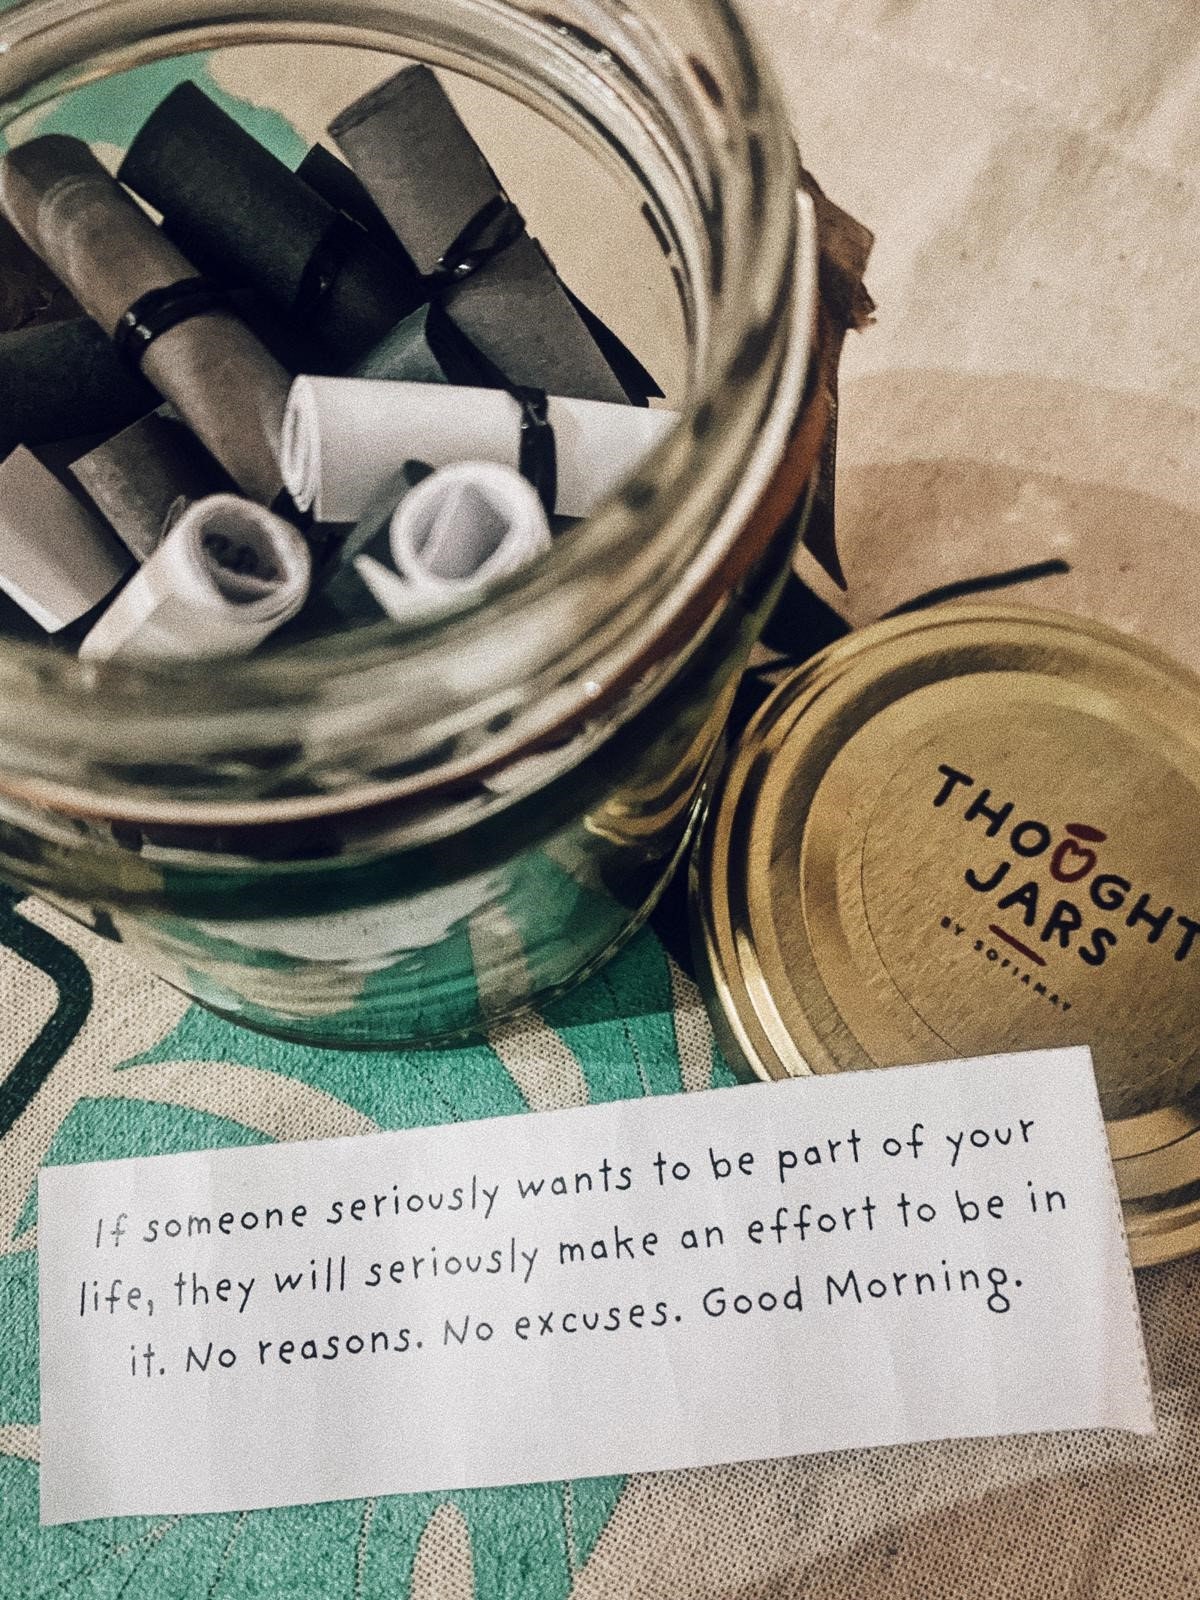 THOUGHT
JARS
BY SOFIAMAY
If someone seriously wants to be part of your
life, they will seriously make an effort to be in
it. No reasons. No excuses. Good Morning.